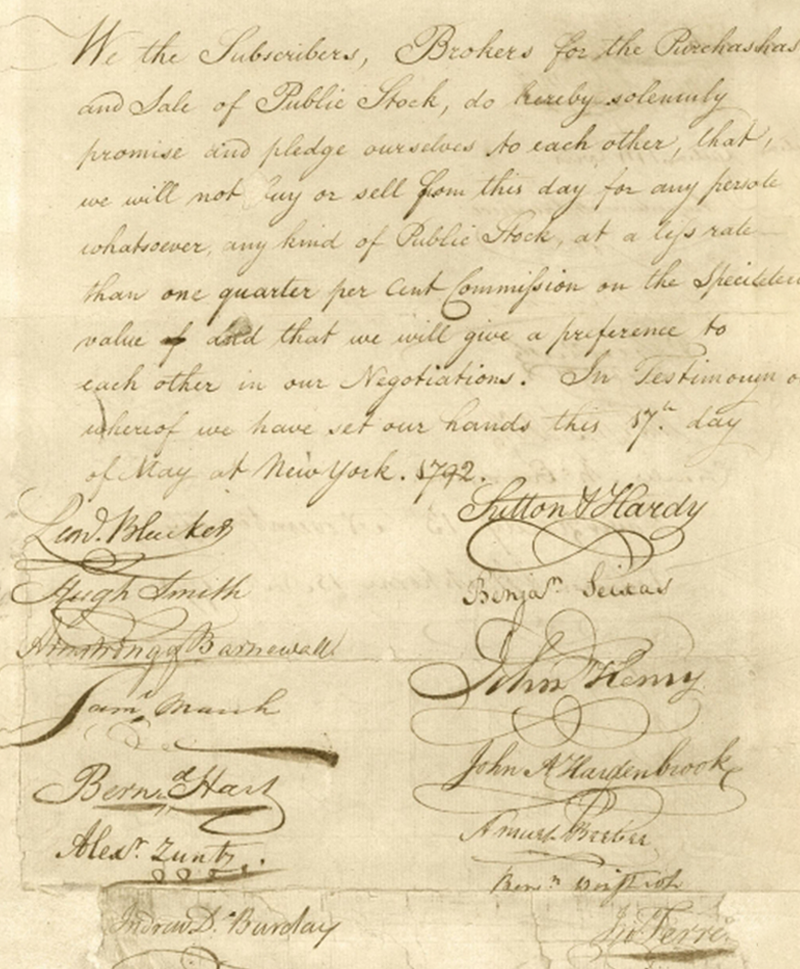 We the Subscribers, Brokers for the Purchashas
and Sale of Public Stock, do hereby solemnly
promise and pledge ourselves to each other, that,
we will not buy or sell from this day for any persole
whatsoever, any kind of Public Stock, at a less rate
than one quarter per Cent Commission on the
value of and that we will give a preference to
each other in our Negotiations. In Testimony o
whereof we have set our hands this 17th. day
of May at New York. 1792.
Leod. Bleecker
Hugh Smith
Armstrong & Barnewall
Saml. March
Bernd. Hart
Alexr. Zuntz.
Andrew D. Barclay
Sutton & Hardy
Benjam Seixas
John Henry
John A Hardenbrook
Amuel Beebee
Jno Ferre